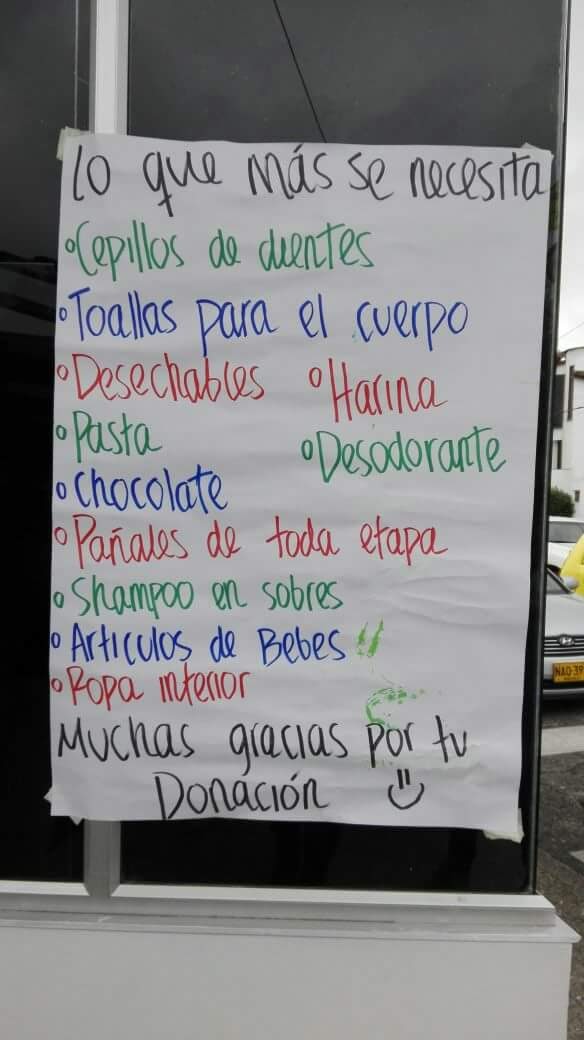 Lo que más se necesita
°Cepillos de dientes
°Toallas para el cuerpo
°Desechables °Harina
°Pasta °Desodorante
°Chocolate
°Pañales de toda etapa
°Shampoo en sobres
°Articulos de Bebes
°Ropa interior
Muchas gracias por tu
Donación
NAO-39